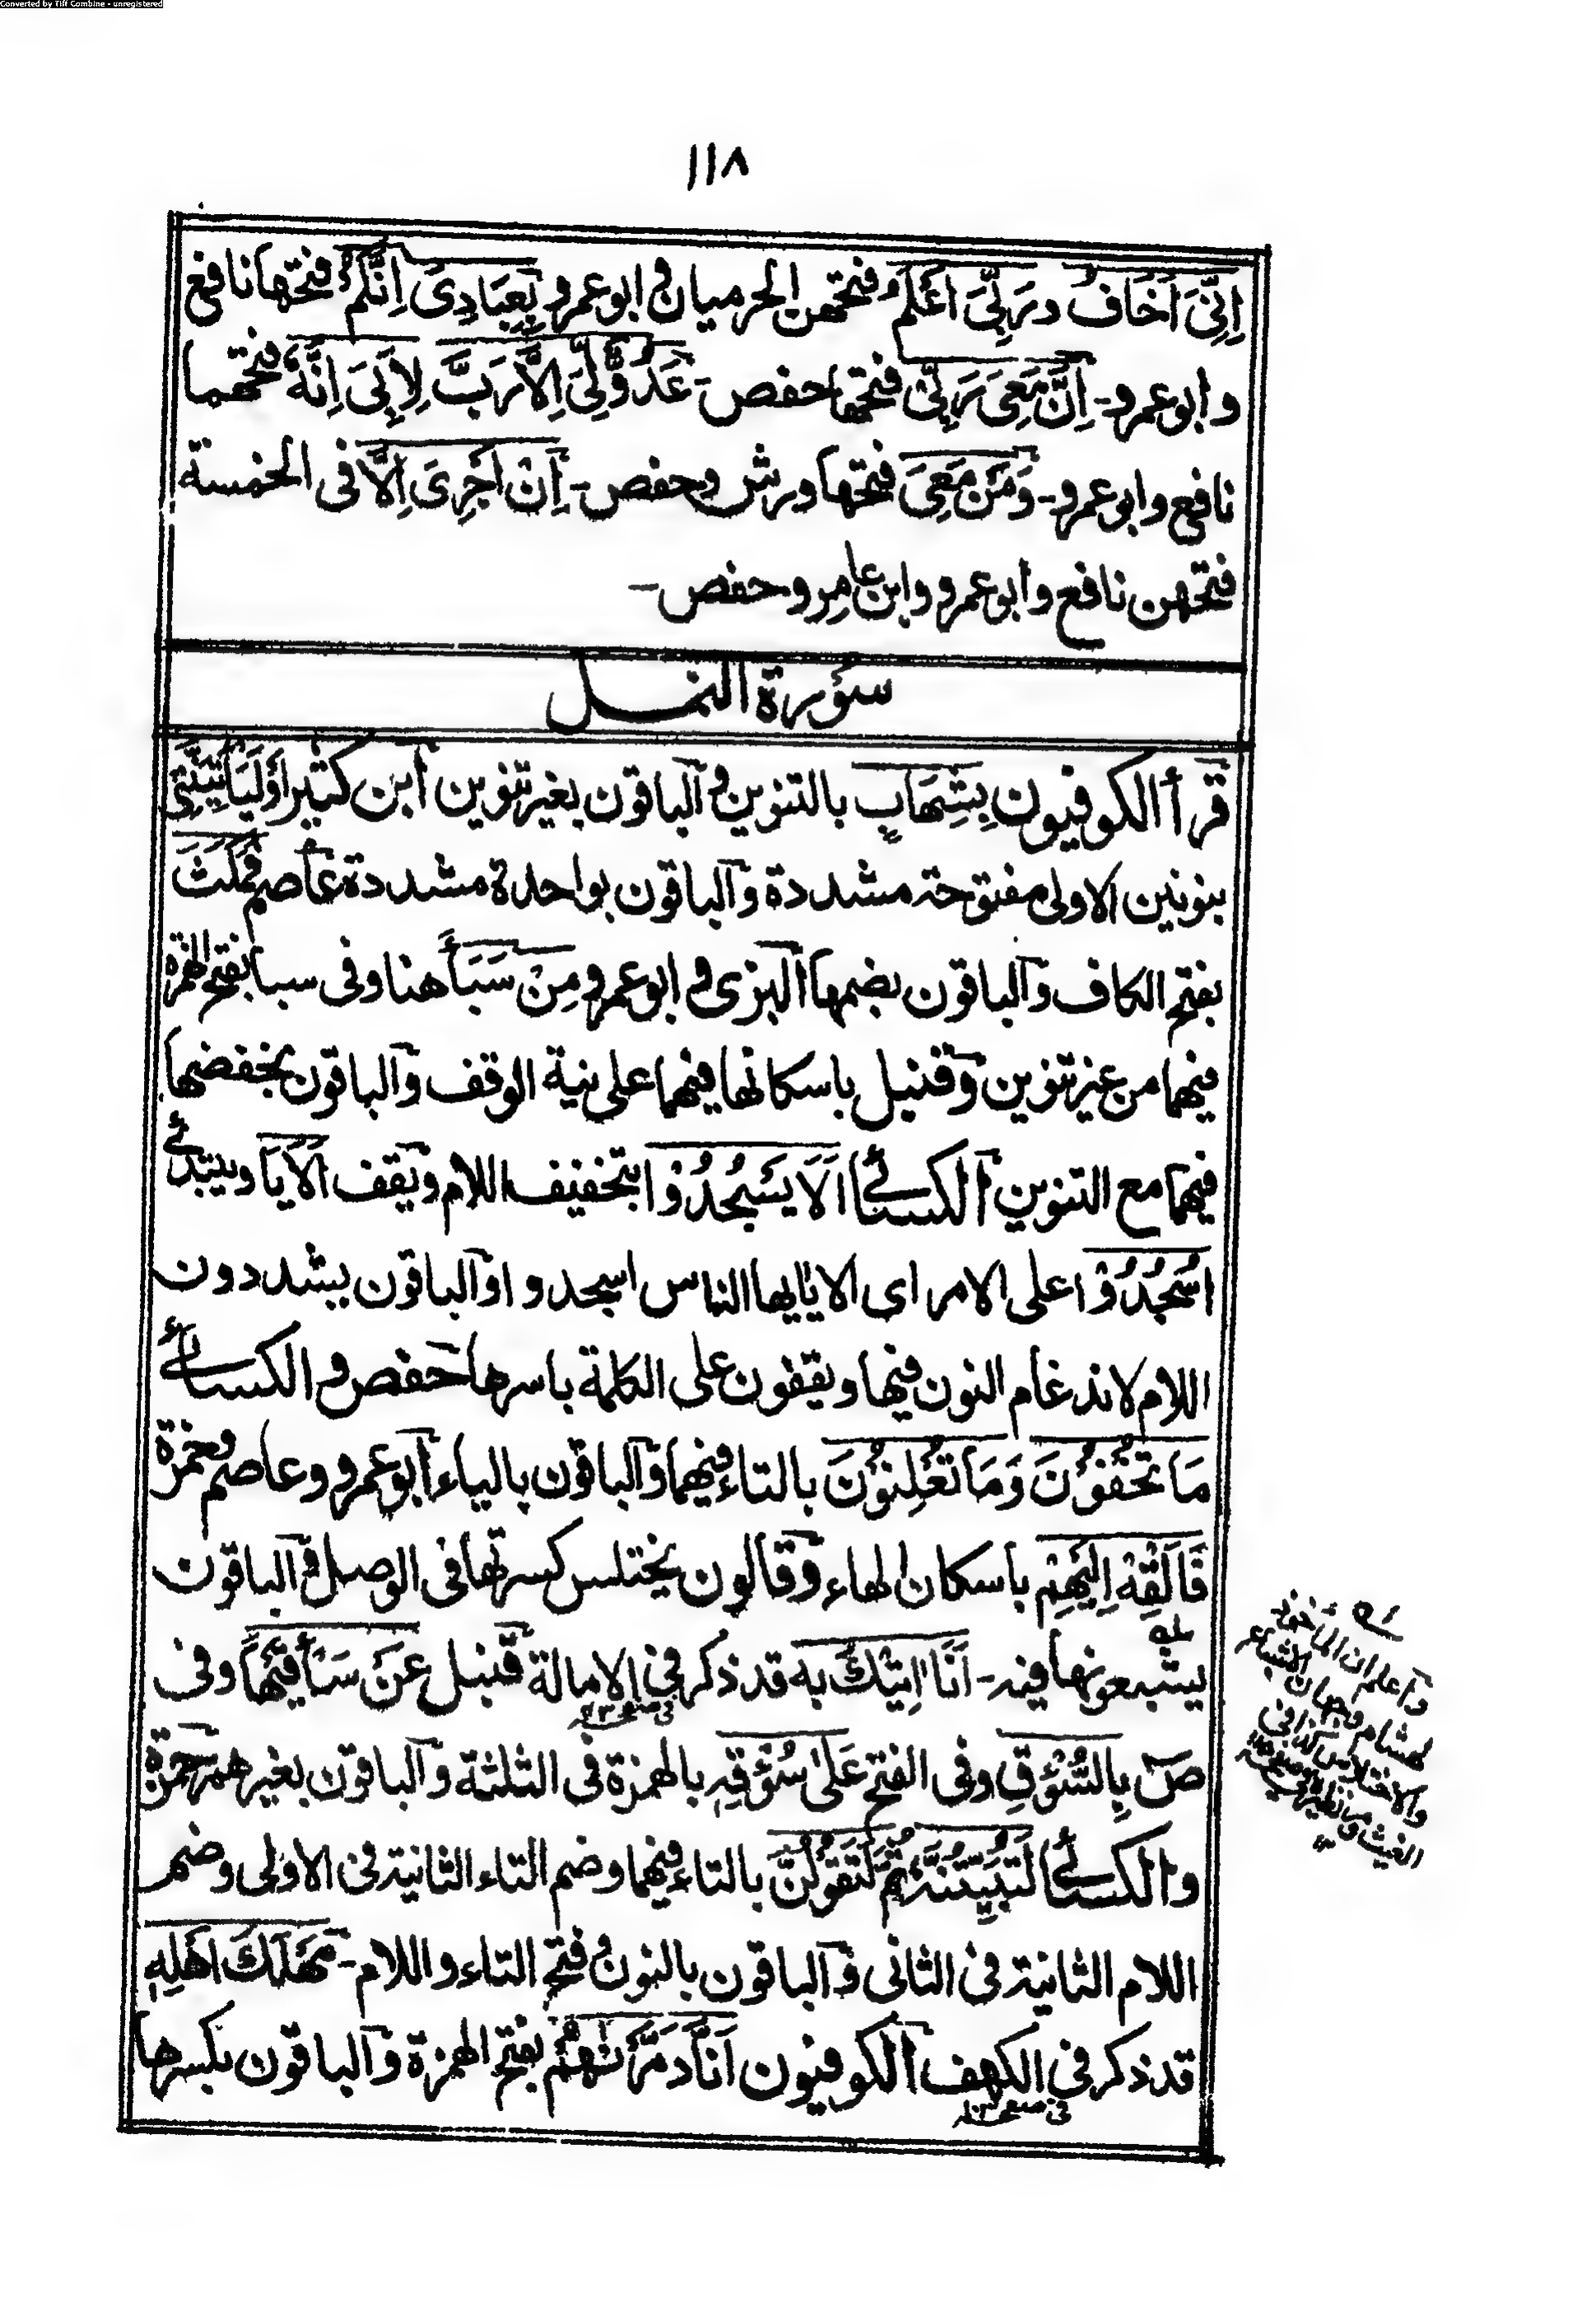 Converted by Tiff Combine - unregistered
١١٨
اِنِّیَ اَخَافُ و رَبِّیَ اَعْلَمُ فتحهن الحرمیان و ابو عمرو بِعِبَادِیَ اِنَّكُمْ فتحها نافع
و ابو عمرو - اِنَّ مَعِیَ رَبِّیْ فتحها حفص - عَدُوٌّ لِّیَ اِلَّا رَبَّ لِاَبِیَ اِنَّهٗ فتحهما
نافع و ابو عمرو - وَمَنْ مَعِیَ فتحها ورش و حفص - اِنْ اَجْرِیَ اِلَّا فی الخمسة
فتحهن نافع و ابو عمرو و ابن عامر و حفص -
سورة النمل
قرأ الكوفیون بِشِهَابٍ بالتنوین و الباقون بغیر تنوین ابن كثیر اَوْ لَیَاْتِیَنَّنِیْ
بنونین الاولی مفتوحة مشددة و الباقون بواحدة مشددة عاصم فَمَكَثَ
بفتح الكاف و الباقون بضمها البزی و ابو عمرو مِنْ سَبَأَ هنا و فی سبا بفتح الهمزة
فیهما من غیر تنوین و قنبل باسكانها فیهما علی نیة الوقف و الباقون بخفضها
فیهما مع التنوین الكسائی اَلَا یَسْجُدُوْا بتخفیف اللام و یقف اَلَا یَا و یبتدئ
اُسْجُدُوْا علی الامر ای الا یٰایها الناس اسجدوا و الباقون یشددون
اللام لاندغام النون فیها و یقفون علی الكلمة باسرها حفص و الكسائی
مَا تُخْفُوْنَ وَمَا تُعْلِنُوْنَ بالتاء فیهما و الباقون بالیاء ابو عمرو و عاصم و حمزة
فَاَلْقِهْ اِلَیْهِمْ باسكان الهاء و قالون یختلس كسرتها فی الوصل و الباقون
یشبعونها فیه - اَنَا اٰتِیْكَ بِهٖ قد ذكر فی الامالة قنبل عَنْ سَأْقَیْهَا و فی
صٓ بِالسُّؤْقِ و فی الفتح عَلٰی سُؤْقِهٖ بالهمزة فی الثلثة و الباقون بغیر همز حمزة
و الكسائی لَتُبَیِّتُنَّهٗ ثُمَّ لَتَقُوْلُنَّ بالتاء فیهما و ضم التاء الثانیة فی الاولی و ضم
اللام الثانیة فی الثانی و الباقون بالنون و فتح التاء و اللام - مَهْلَكَ اَهْلِهٖ
قد ذكر فی الكهف الكوفیون اَنَّا دَمَّرْنٰهُمْ بفتح الهمزة و الباقون بكسرها
واعلم ان المأخوذ
لهشام وجهان الاشباع
والاختلاس كذا فی
الغیث